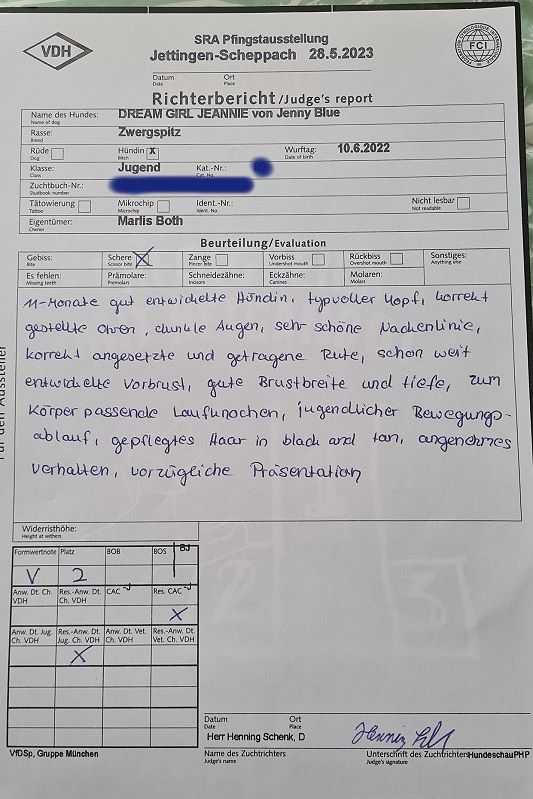 VDH
SRA Pfingstausstellung
Jettingen-Scheppach 28.5.2023
FCI
Datum Ort
Date Place
Richterbericht/Judge's report
Name des Hundes: DREAM GIRL JEANNIE von Jenny Blue
Name of dog
Rasse: Zwergspitz
Breed
Rüde Hündin X Wurftag: 10.6.2022
Dog Bitch Date of birth
Klasse: Jugend Kat.-Nr.:
Class Cat. No.
Zuchtbuch-Nr.:
Studbook number
Tätowierung Mikrochip Ident.-Nr.: Nicht lesbar
Tattoo Microchip Ident. No. Not readable
Eigentümer: Marlis Both
Owner
Beurteilung/Evaluation
Gebiss: Schere X Zange Vorbiss Rückbiss Sonstiges:
Bite Scissor bite Pincer bite Undershot mouth Overshot mouth Anything else
Es fehlen: Prämolare: Schneidezähne: Eckzähne: Molaren:
Missing teeth Premolars Incisors Canines Molars
11-Monate gut entwickelte Hündin, typvoller Kopf, korrekt
gestellte Ohren, dunkle Augen, sehr schöne Nackenlinie,
korrekt angesetzte und getragene Rute, schon weit
entwickelte Vorbrust, gute Brustbreite und tiefe, zum
Körper passende Laufknochen, jugendlicher Bewegungs-
ablauf, gepflegtes Haar in black and tan, angenehmes
Verhalten, vorzügliche Präsentation
Für den Aussteller
Widerristhöhe:
Height at withers
Formwertnote Platz BOB BOS BJ
V 2
Anw. Dt. Ch. VDH Res.-Anw. Dt. Ch. VDH CAC -J Res. CAC -J
X
Anw. Dt. Jug. Ch. VDH Res.-Anw. Dt. Jug. Ch. VDH Anw. Dt. Vet. Ch. VDH Res.-Anw. Dt. Vet. Ch. VDH
X
Datum Ort
Date Place
Herr Henning Schenk, D
VfDSp, Gruppe München Name des Zuchtrichters Unterschrift des Zuchtrichters HundeschauPHP
Judge's name Judge's signature